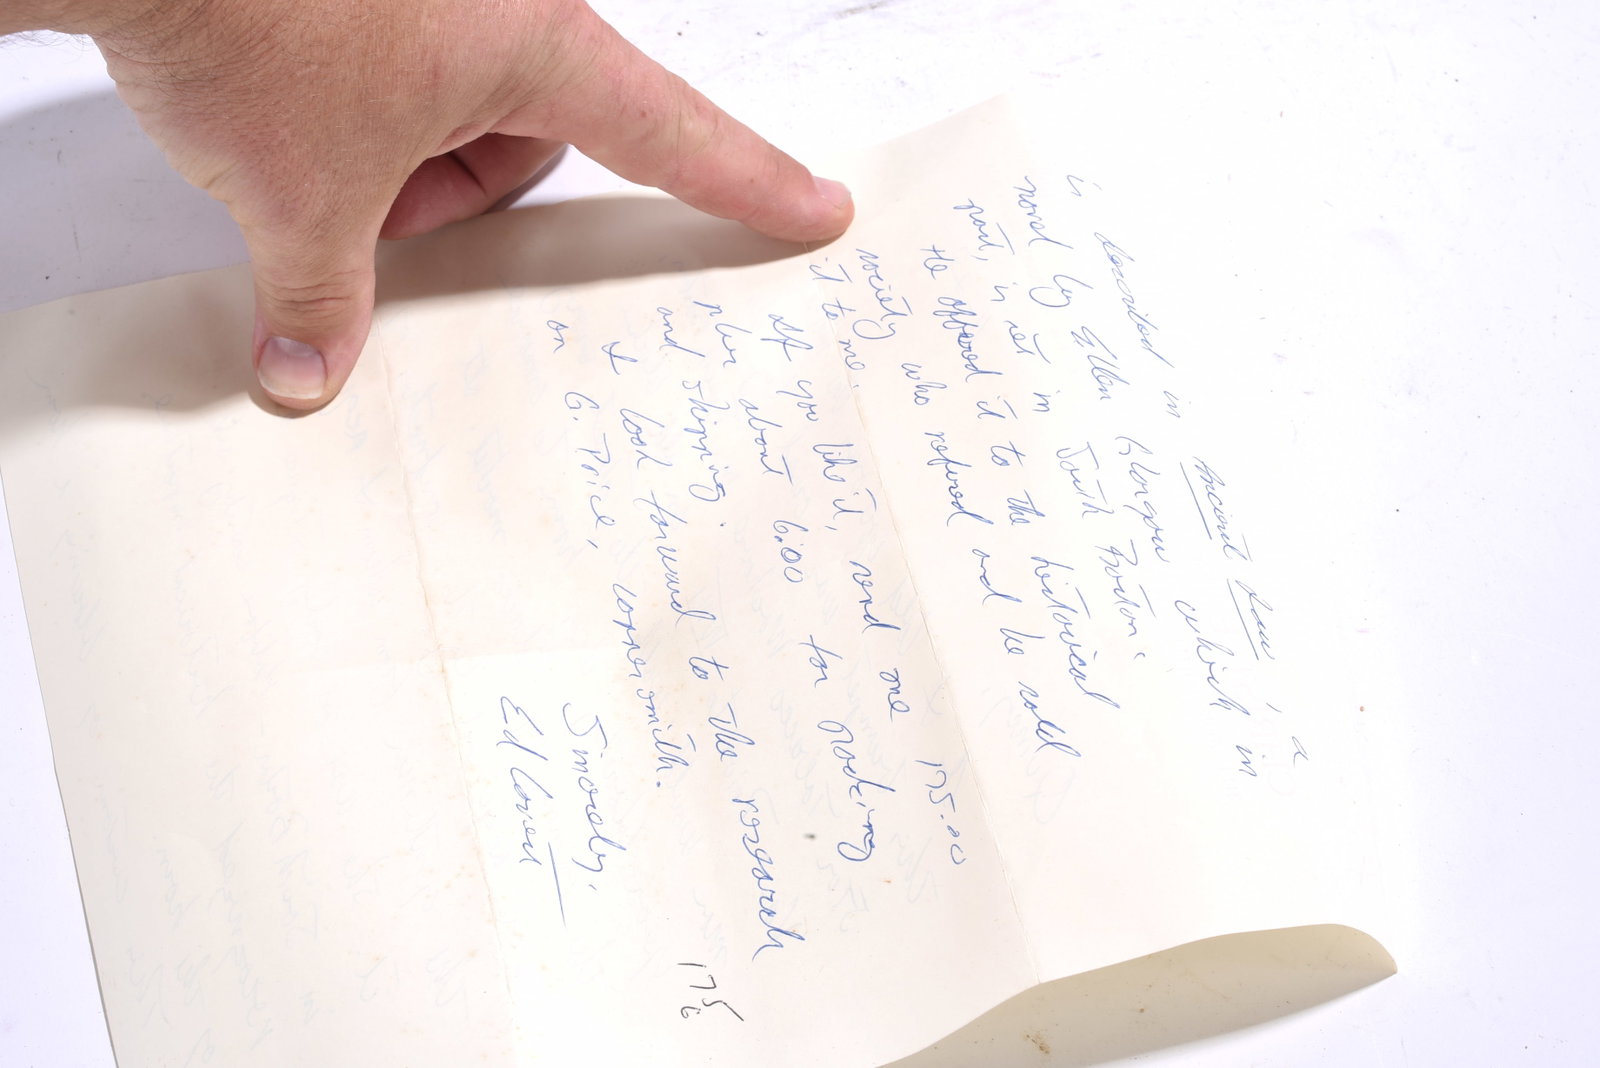 is described in Ancient Law, a
novel by Ellen Glasgow which in
part, is set in South Boston
He offered it to the historical
society who refused and he sold
it to me.
If you like it, send me 175.00
plus about 6.00 for packing
and shipping.
I look forward to the research
on G. Price, coppersmith.
Sincerely,
Ed Covell
175
6